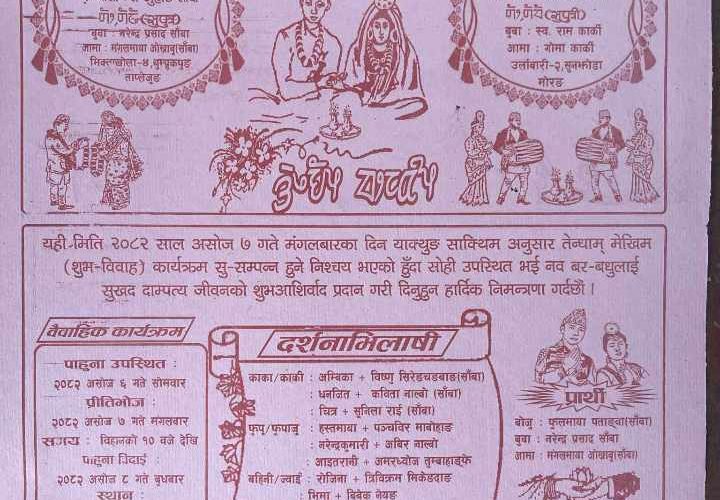 बुवा : नरेन्द्र प्रसाद साँबा
आमा : मंगलमाया ओखाबु(साँबा)
ताप्लेजुङ
(सुपुत्री)
बुवा : स्व. राम कार्की
आमा : गोमा कार्की
उर्लाबारी-२,सुनझोडा
मोरङ
यही मिति २०८२ साल असोज ७ गते मंगलबारका दिन याक्थुङ साक्थिम अनुसार तेन्धाम् मेखिम
(शुभ-विवाह) कार्यक्रम सु-सम्पन्न हुने निश्चय भएको हुँदा सोही उपस्थित भई नव बर-बधुलाई
सुखद दाम्पत्य जीवनको शुभआशिर्वाद प्रदान गरी दिनुहुन हार्दिक निमन्त्रणा गर्दछौं ।
वैवाहिक कार्यक्रम
पाहुना उपस्थित :
२०८२ असोज ६ गते सोमवार
प्रीतिभोज :
२०८२ असोज ७ गते मंगलबार
समय : विहानको १० वजे देखि
पाहुना विदाई :
२०८२ असोज ८ गते बुधबार
स्थान :
दर्शनाभिलाषी
काका/काकी : अम्बिका + विष्णु सिरेङचङबाङ(साँबा)
: धनजित + कविता नाल्बो (साँबा)
: चित्र + सुविला राई (साँबा)
फुपु/फुपाजु : हस्तमाया + पञ्चविर माबोहाङ
: नरेन्द्रकुमारी + अबिर नाल्बो
: आइतरानी + अमरध्वोज तुम्बाहाङ्फे
बहिनी/ज्वाई : रोजिना + त्रिविक्रम मिकेङदाङ
: भिमा + विवेक नेयङ
प्रार्थी
बोजु : फुलमाया पताङवा(साँबा)
बुवा : नरेन्द्र प्रसाद साँबा
आमा : मंगलमाया ओखाबु(साँबा)